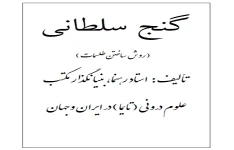 گنج سلطانی
(روش ساختن طلسمات)
تألیف: استاد رهنما، بنیانگذار مکتب
علوم درونی (تایا) در ایران و جهان